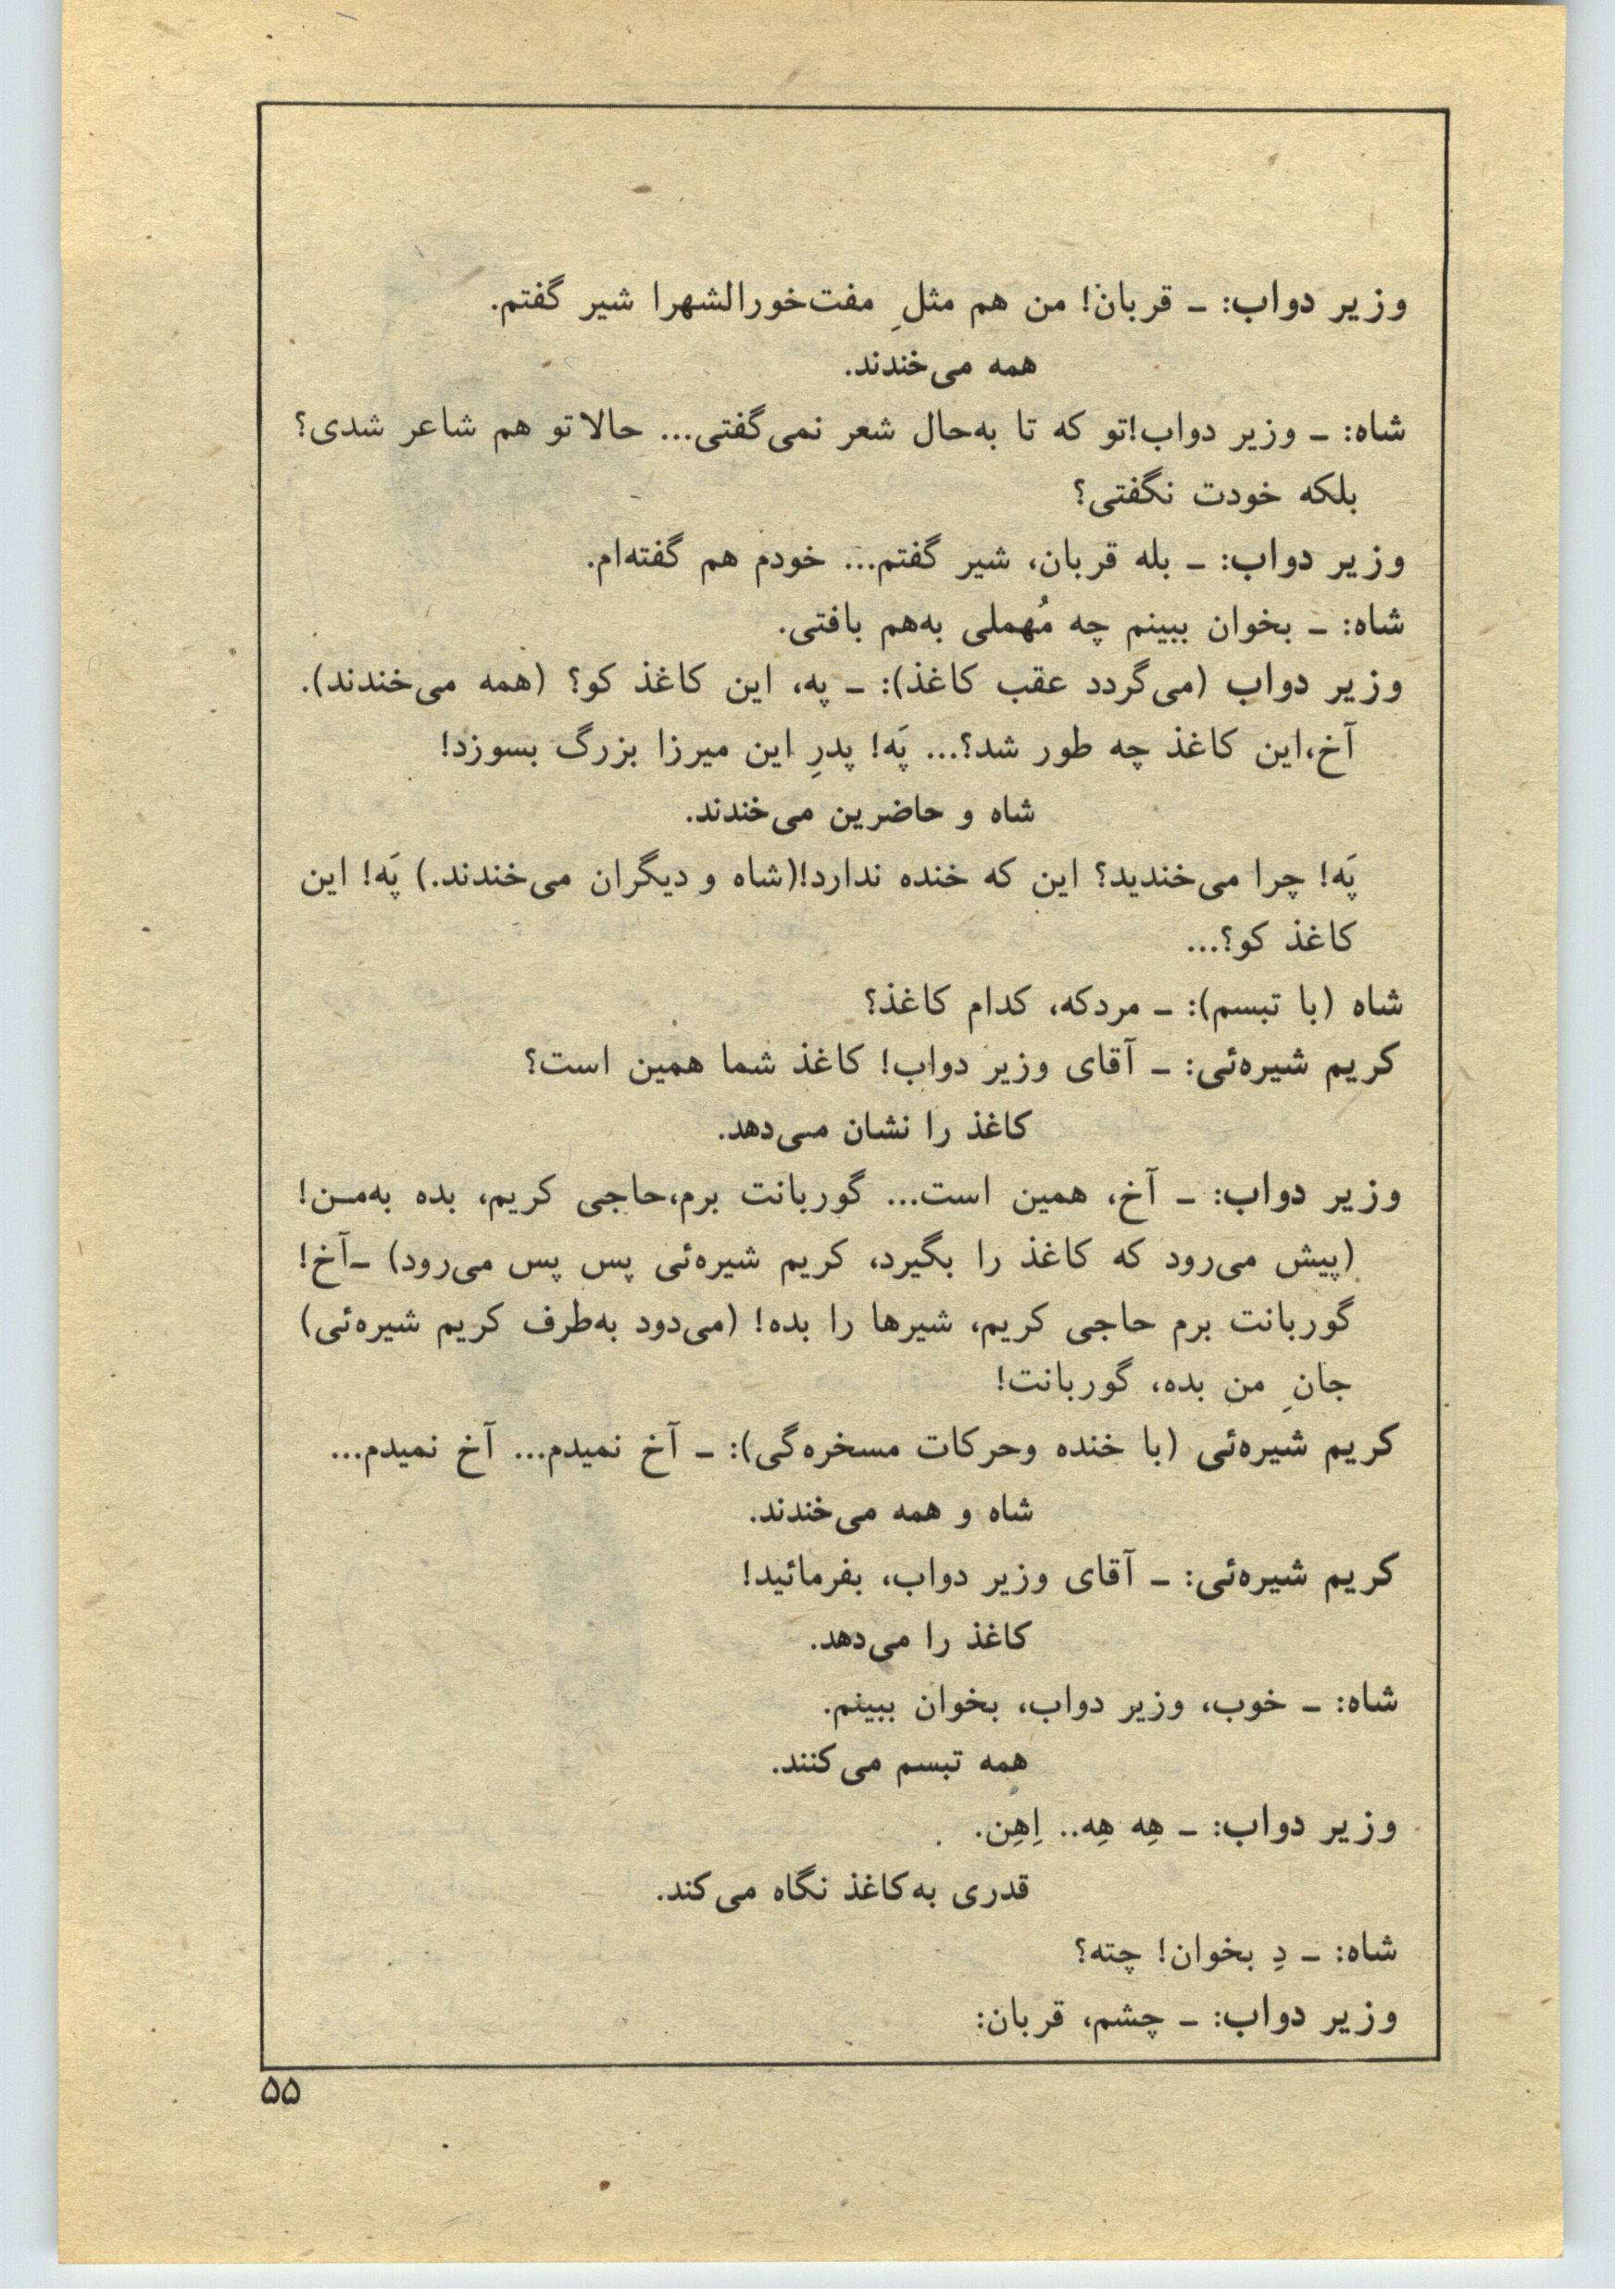 وزیر دواب: ـ قربان! من هم مثلِ مفت‌خورالشهرا شیر گفتم.
همه می‌خندند.
شاه: ـ وزیر دواب!تو که تا به‌حال شعر نمی‌گفتی... حالا تو هم شاعر شدی؟
بلکه خودت نگفتی؟
وزیر دواب: ـ بله قربان، شیر گفتم... خودم هم گفته‌ام.
شاه: ـ بخوان ببینم چه مُهملی به‌هم بافتی.
وزیر دواب (می‌گردد عقب کاغذ): ـ په، این کاغذ کو؟ (همه می‌خندند).
آخ،این کاغذ چه طور شد؟... پَه! پدرِ این میرزا بزرگ بسوزد!
شاه و حاضرین می‌خندند.
پَه! چرا می‌خندید؟ این که خنده ندارد!(شاه و دیگران می‌خندند.) پَه! این
کاغذ کو؟...
شاه (با تبسم): ـ مردکه، کدام کاغذ؟
کریم شیره‌ئی: ـ آقای وزیر دواب! کاغذ شما همین است؟
کاغذ را نشان می‌دهد.
وزیر دواب: ـ آخ، همین است... گوربانت برم،حاجی کریم، بده به‌من!
(پیش می‌رود که کاغذ را بگیرد، کریم شیره‌ئی پس پس می‌رود) ـ‌آخ!
گوربانت برم حاجی کریم، شیرها را بده! (می‌دود به‌طرف کریم شیره‌ئی)
جانِ من بده، گوربانت!
کریم شیره‌ئی (با خنده وحرکات مسخره‌گی): ـ آخ نمیدم... آخ نمیدم...
شاه و همه می‌خندند.
کریم شیره‌ئی: ـ آقای وزیر دواب، بفرمائید!
کاغذ را می‌دهد.
شاه: ـ خوب، وزیر دواب، بخوان ببینم.
همه تبسم می‌کنند.
وزیر دواب: ـ هِه هِه.. اِهِن.
قدری به‌کاغذ نگاه می‌کند.
شاه: ـ دِ بخوان! چته؟
وزیر دواب: ـ چشم، قربان:
۵۵